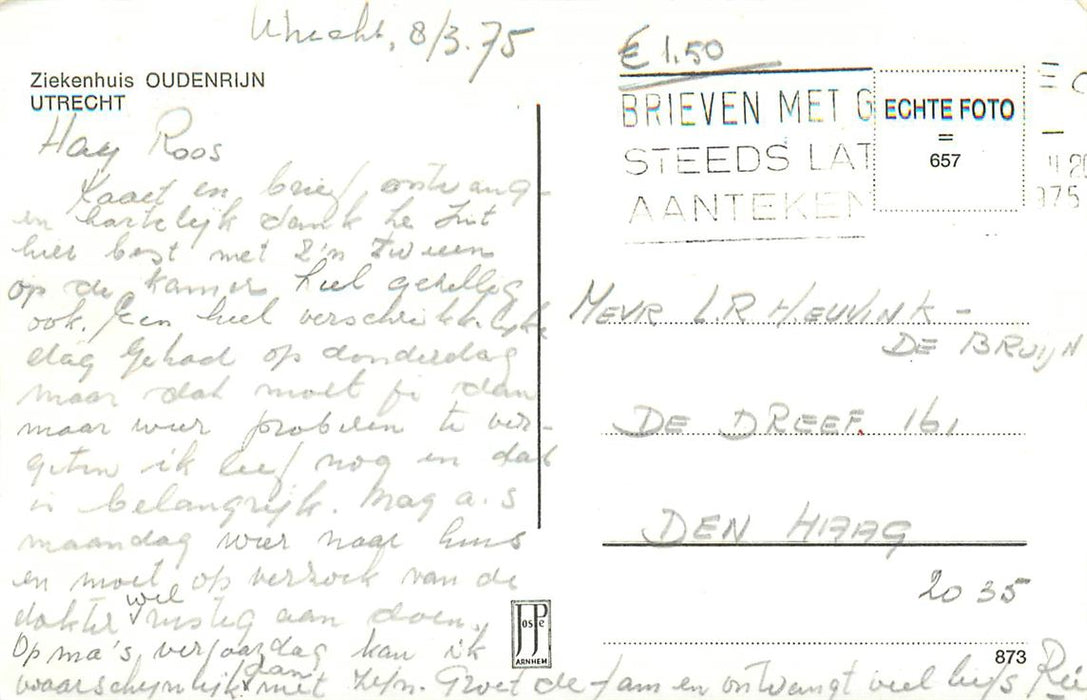 Utrecht, 8/3.75
Ziekenhuis OUDENRIJN
UTRECHT
Hay Roos
Kaart en brief ontvang-
en hartelijk dank he zit
hier best met z'n tweeen
op de kamer heel gezellig
ook. Een heel verschrikkelijke
dag gehad op donderdag
maar dat moet je dan
maar weer proberen te ver-
geten ik leef nog en dat
is belangrijk. Mag a.s
maandag weer naar huis
en moet op verzoek van de
dokter wel rustig aan doen.
Op ma's verjaardag kan ik
waarschijnlijk dan met zijn. Groet de fam en ontvangt veel liefs
€ 1,50
BRIEVEN MET G
STEEDS LAT
AANTEKEN
ECHTE FOTO
=
657
975
MEVR L.R HIEUVINK -
DE BRUIJN
DE DREEF. 161
DEN HAAG
2035
JosPe
ARNHEM
873